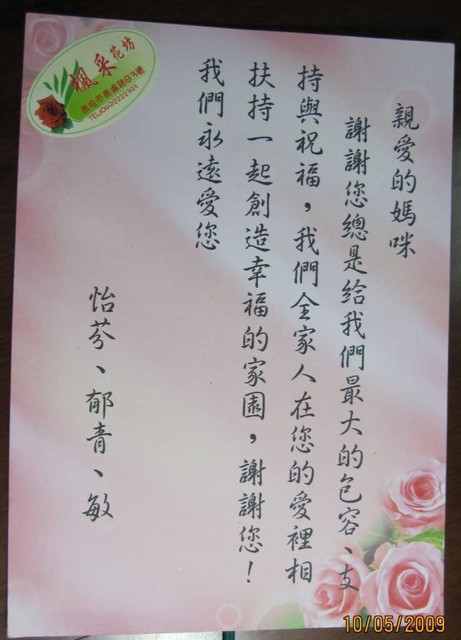 親愛的媽咪
謝謝您總是給我們最大的包容、支
持與祝福，我們全家人在您的愛裡相
扶持一起創造幸福的家園，謝謝您！
我們永遠愛您
怡芬、郁青、敏
楓采花坊
10/05/2009